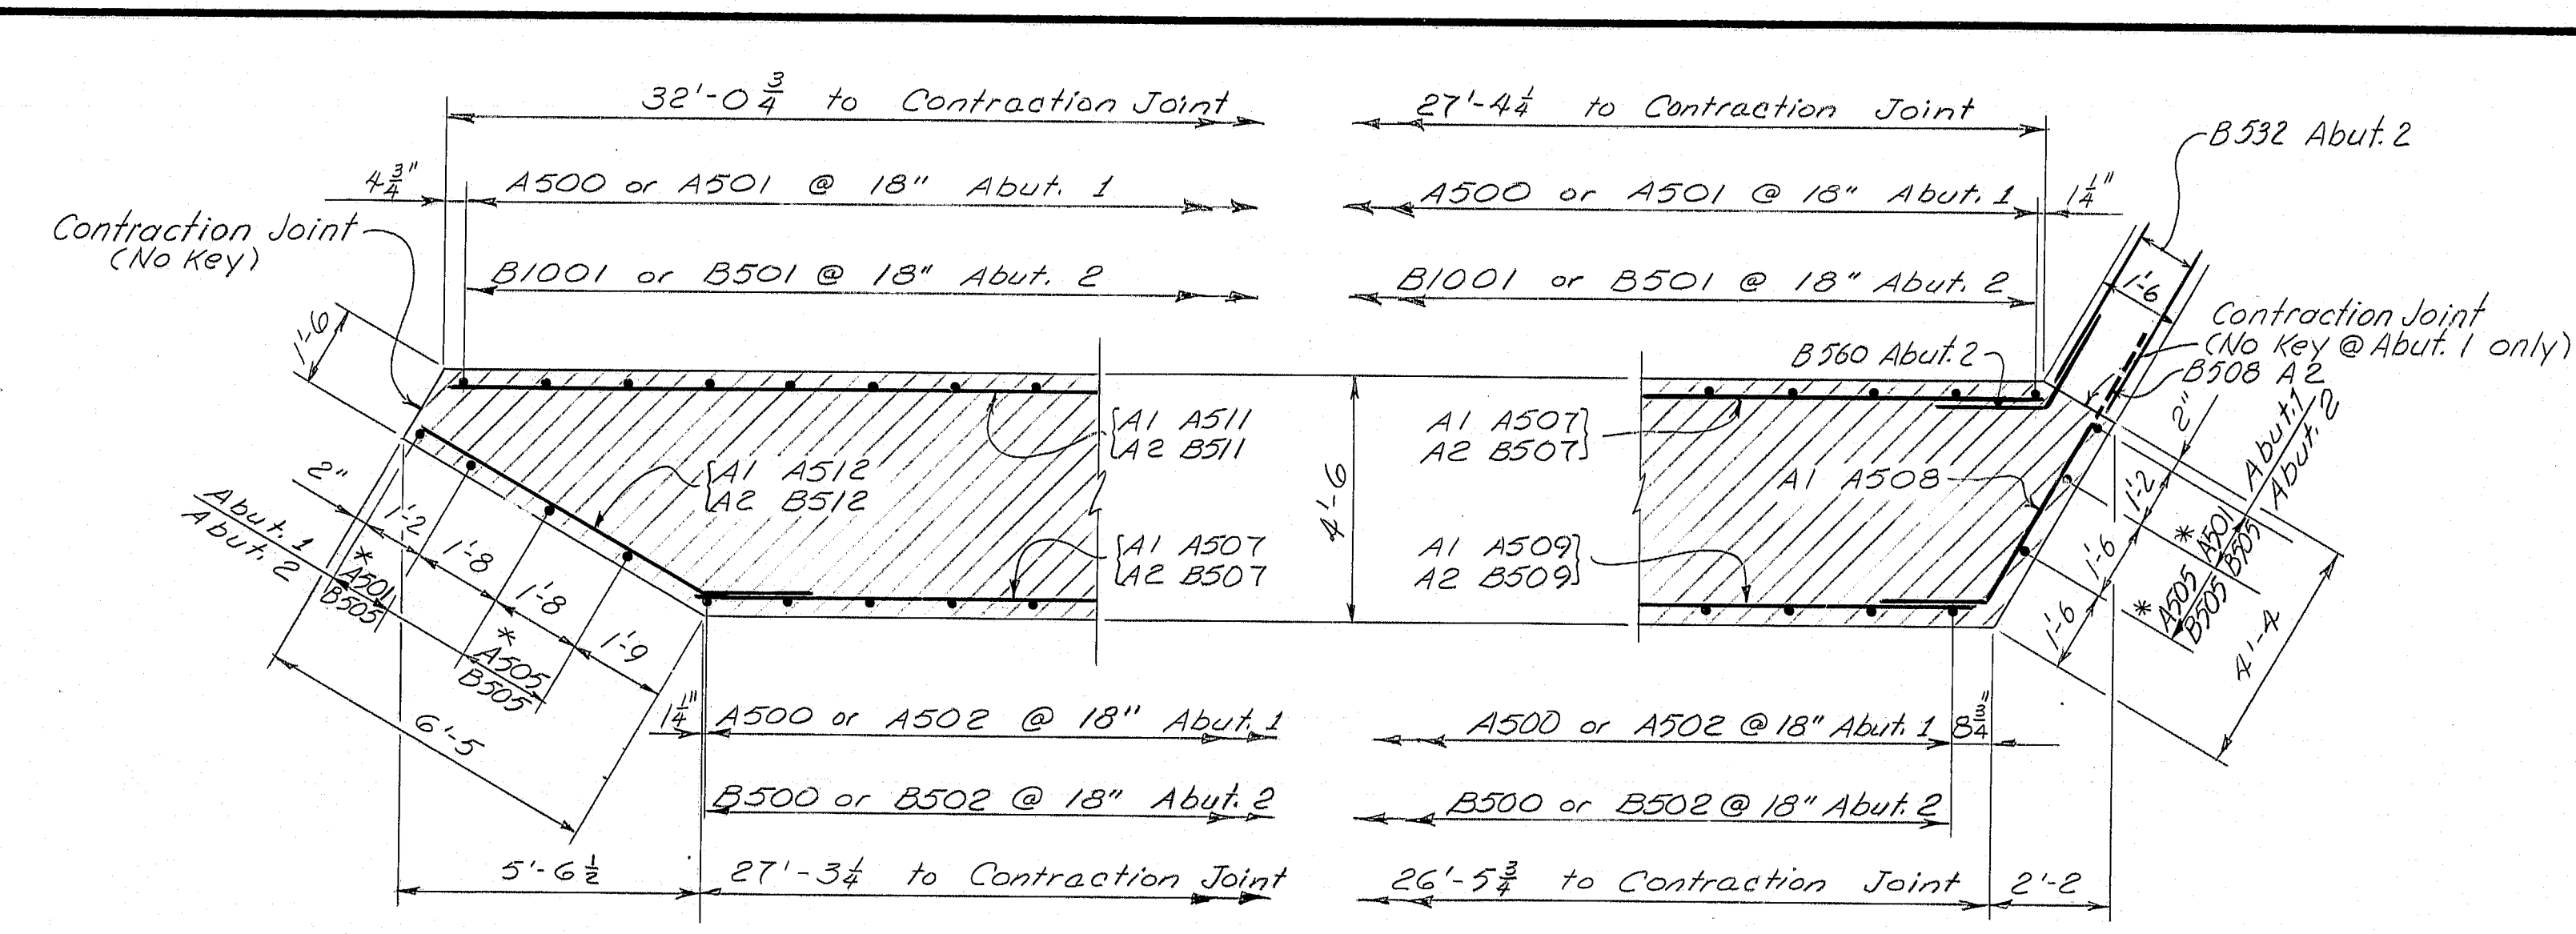 32'-0 3/4 to Contraction Joint
27'-4 1/4 to Contraction Joint
B532 Abut. 2
4 3/4"
A500 or A501 @ 18" Abut. 1
A500 or A501 @ 18" Abut. 1
1 1/4"
Contraction Joint
(No Key)
B1001 or B501 @ 18" Abut. 2
B1001 or B501 @ 18" Abut. 2
1'-6
1'-6
Contraction Joint
(No Key @ Abut. 1 only)
B560 Abut. 2
B508 A2
A1 A511
A2 B511
A1 A507
A2 B507
4'-6
A1 A512
A2 B512
A1 A508
A1 A507
A2 B507
A1 A509
A2 B509
2"
1'-2
1'-8
1'-8
1'-9
Abut. 1
Abut. 2
*
A501
B505
*
A505
B505
6'-5
2"
1'-2
1'-6
1'-6
Abut. 1
Abut. 2
* A501
B505
* A505
B505
4'-4
1 1/4"
A500 or A502 @ 18" Abut. 1
A500 or A502 @ 18" Abut. 1
8 3/4"
B500 or B502 @ 18" Abut. 2
B500 or B502 @ 18" Abut. 2
5'-6 1/2
27'-3 1/4 to Contraction Joint
26'-5 3/4 to Contraction Joint
2'-2